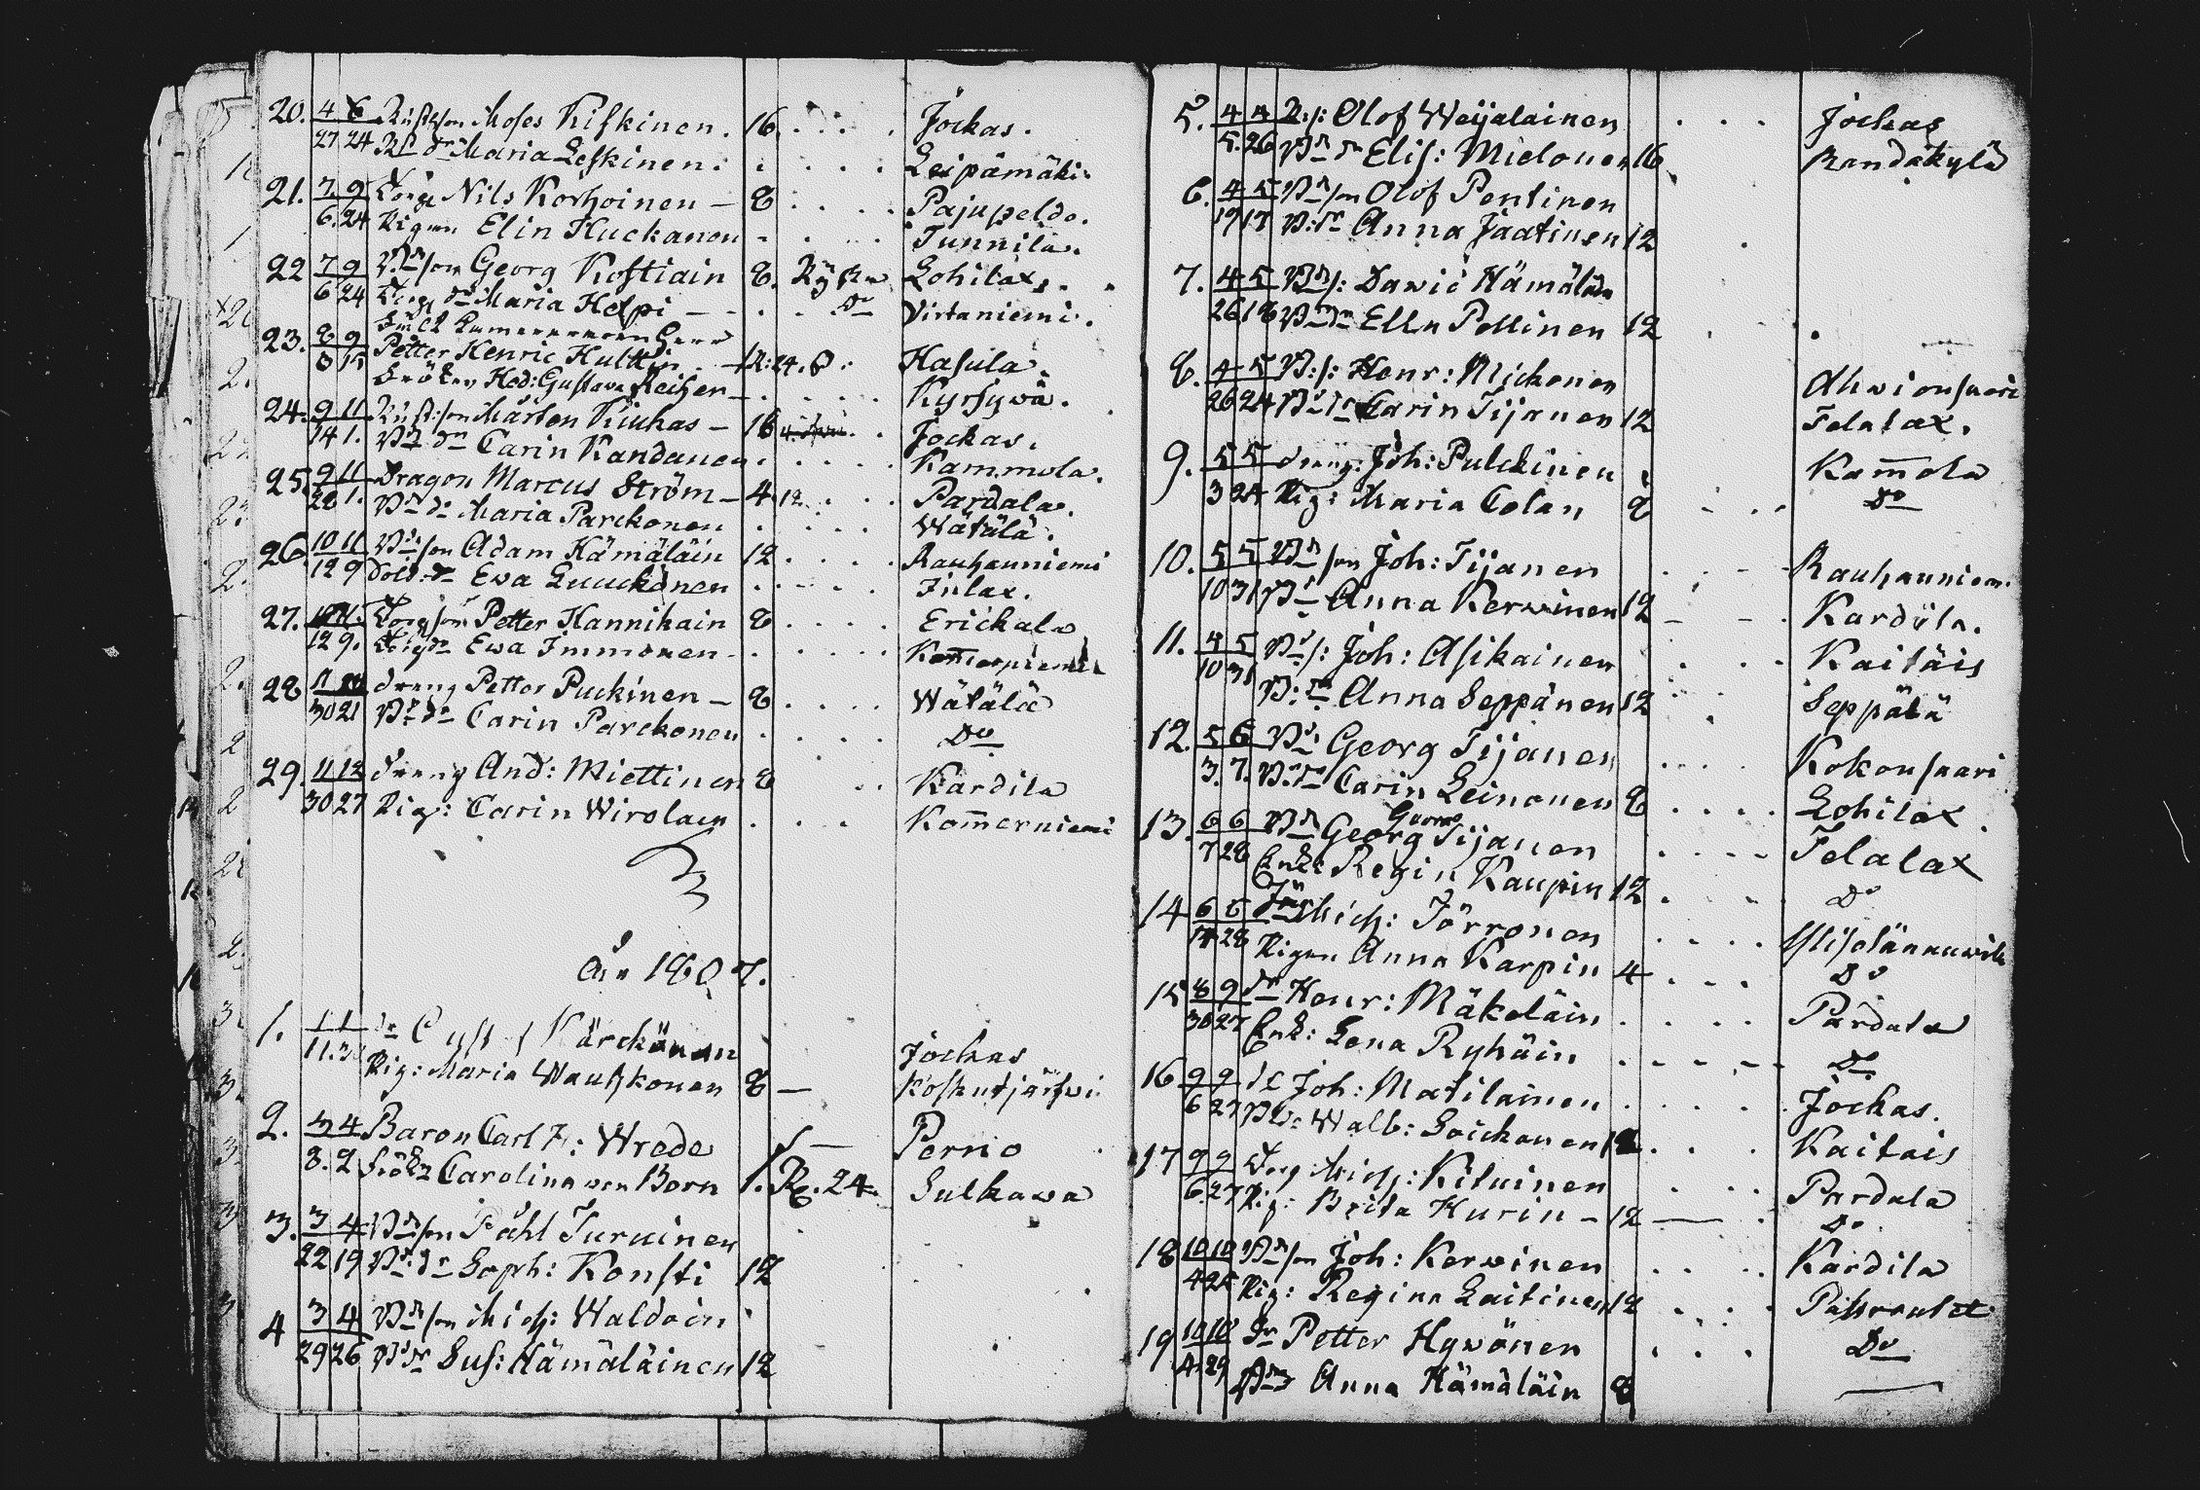 20. 4 6 Rusth:son Moses Kiskinen. 16. Jockas.
27 24 Rs dr Maria Leskinen. Leipämäki.
21. 7 9 Torp Nils Korhoinen – 8 Pajupeldo.
6. 24 Pigan Elin Huckanen Tunnila.
22 7 9 Bdeson Georg Kostiain 8. Lohilax.
6 24 dr Maria Helpi – Do Virtaniemi.
Herr
23. 8 9 Petter Henric Hultin R: 24. Hasula.
8 15 Fröken Hed: Gustava Reiher Kyrsywä.
24. 9 11 Rust:son Mårten Kiuhas – 16 Jockas.
14 1. Bde dr Carin Kandanen. Kammola.
25. 9 11 Dragon Marcus Ström – 4. 12. Pardala.
28 1. Bde dr Maria Parckonen Wätälä.
26. 10 11 Bdeson Adam Hämäläin 12 Rauhanniemi
12 9 Sold: dr Ewa Luuckonen Inlax.
27. Torpson Petter Hannikain 8 Erickala
12 9. Ewa Immonen
28 11 dräng Petter Puckinen – 8 Wätälä
30 21 Bde dr Carin Parckonen Do
29. 11 12 dräng And: Miettinen 8 Kardila
30 27 Pig: Carin Wirolain Kom̄erniemi
År 1807.
1. 1 1 dr Kärckönen Jockas
11. Pig: Maria Wauhkonen 8 –
2. 3 4 Baron Carl F: Wrede Perno
8. 2 Frök: Carolina von Born 1. R. 24. Sulkawa
3. 3 4 Bdeson Påhl Turuinen
22 19 Bde dr Soph: Konsti 12
4 3 4 Bdeson Mich: Waldoin
29 26 Bde dr Sus: Hämäläinen 12
5. 4 4 B:s: Olof Weijalainen Jockas
5. 26 Bde dr Elis: Mielonen 16 Randakylä
6. 4 5 Bdeson Olof Pentinen
19 17 B: dr Anna Jaatinen 12
7. 4 5 Bde s: Dawid Hämäläin
26 18 Bde dr Ella Pellinen 12
8. 4 5 B:s: Henr: Mickonen Ahwionsaari
26 24 Bde dr Carin Tijanen 12 Telalax.
9. 5 5 dräng: Joh: Pulckinen Kam̄ola
3 24 Pig: Maria Colan 8 Do
10. 5 5 Bdeson Joh: Tijanen Rauhanniem.
10 31 Bde Anna Kerwinen 12 Kardila.
11. 4 5 Bde s: Joh: Asikainen Kaitais
10 31 B: dr Anna Seppänen 12 Seppälä
12. 5 6 Bde Georg Tijanen Kokonsaari
3. 7. B: dr Carin Leinonen 8 Lohilax
13. 6 6 Bde Georg Tijanen Telalax
7 28 Enk: Regin Kaupin 12 Do
14 6 6 Mich: Törronen
14 28 Pigan Anna Karpin 4 Do
15 8 9 dr Henr: Mäkeläin Pardala
30 27 Enk: Lena Ryhäin Do
16 9 9 dr Joh: Matilainen Jockas.
6 27 Walb: Soickonen 12 Kaitais
17 9 9 Torp Mich: Kituinen Pardala
6. 27 Pig: Brita Hurin – 12 Do
18 10 10 Bdeson Joh: Kerwinen Kardila
4 25 Pig: Regina Laitinen 12
19 10 10 dr Petter Hywönen Do
4. 29 Anna Hämäläin 8